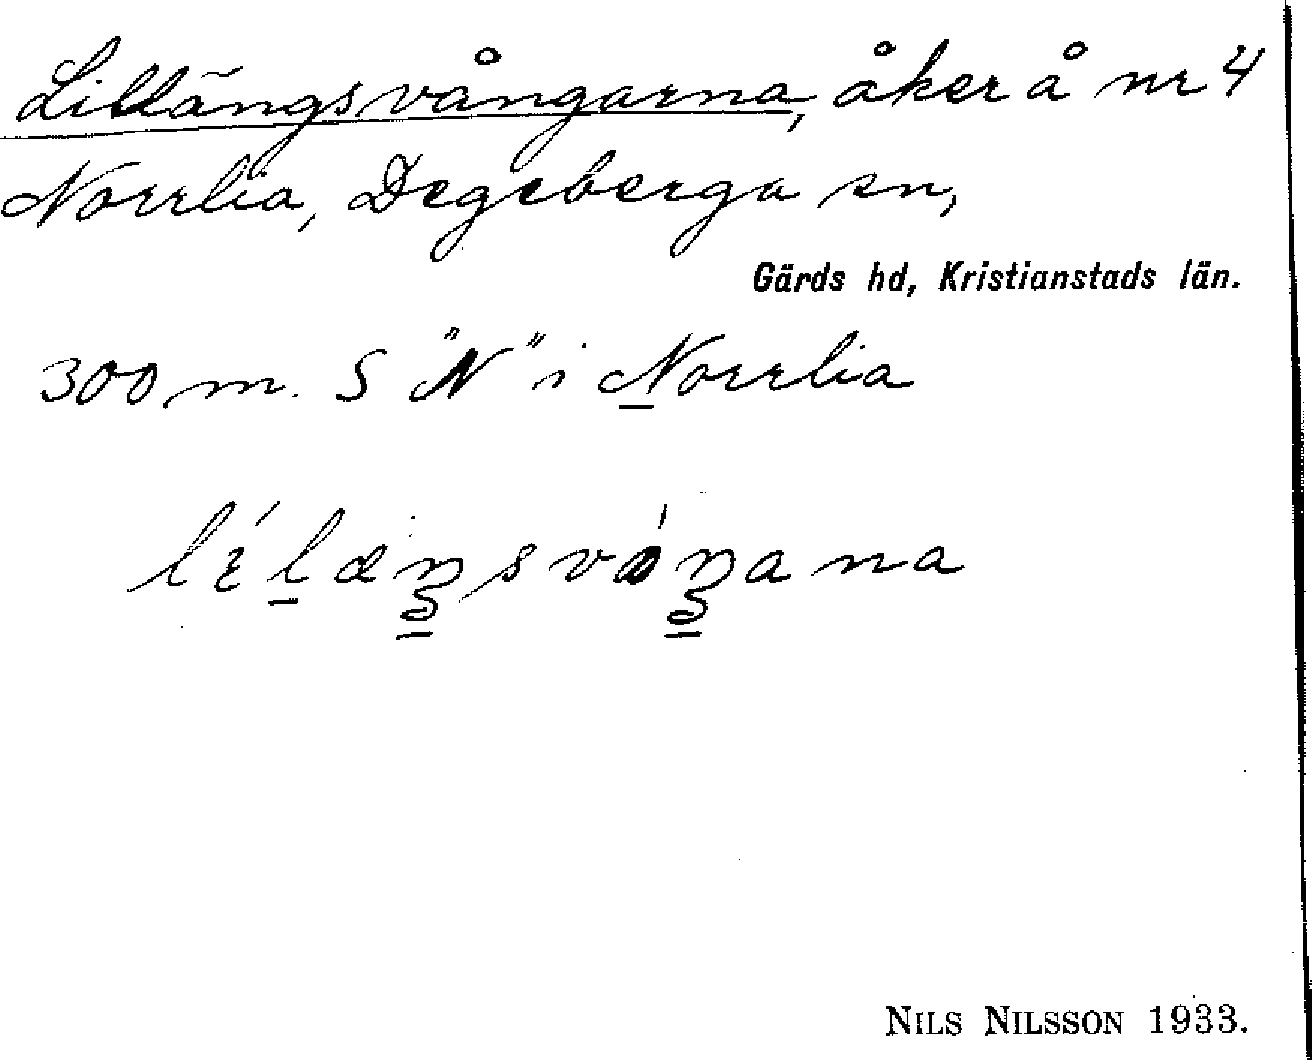 Lillängsvångarna, åker å nr 4
Norrlia, Degeberga sn,
Gärds hd, Kristianstads län.
300 m. S "N" i Norrlia
NILS NILSSON 1933.